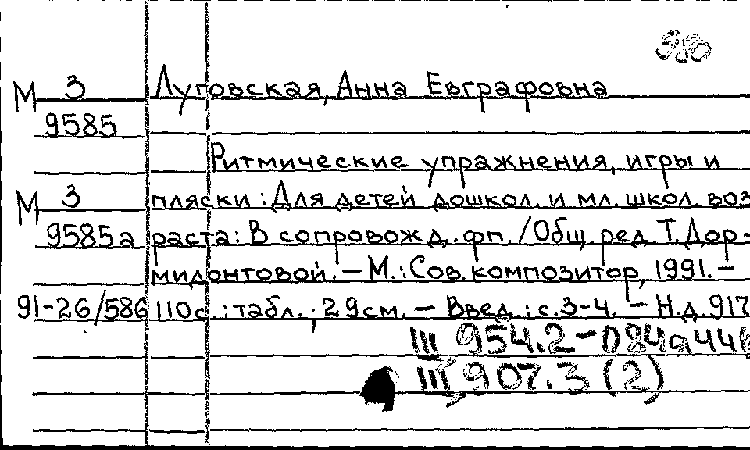 М 3 Луговская, Анна Евграфовна
9585
Ритмические упражнения, игры и
М 3 пляски: Для детей дошкол. и мл. школ. воз
9585а раста: В сопровожд. фп. / Общ. ред. Т. Дор-
мидонтовой. — М.: Сов. композитор, 1991. —
91-26/586 110 с.: табл.; 29 см. — Введ.: с. 3-4. — Н.д. 917
III 954.2-
III 907.3 (2)